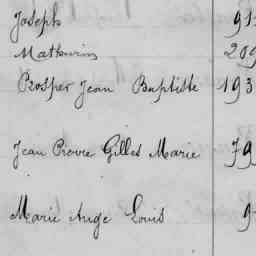 Joseph 91
Mathurin 209
Prosper Jean Baptiste 193
Jean Pierre Gilles Marie 79
Marie Ange Louis 9